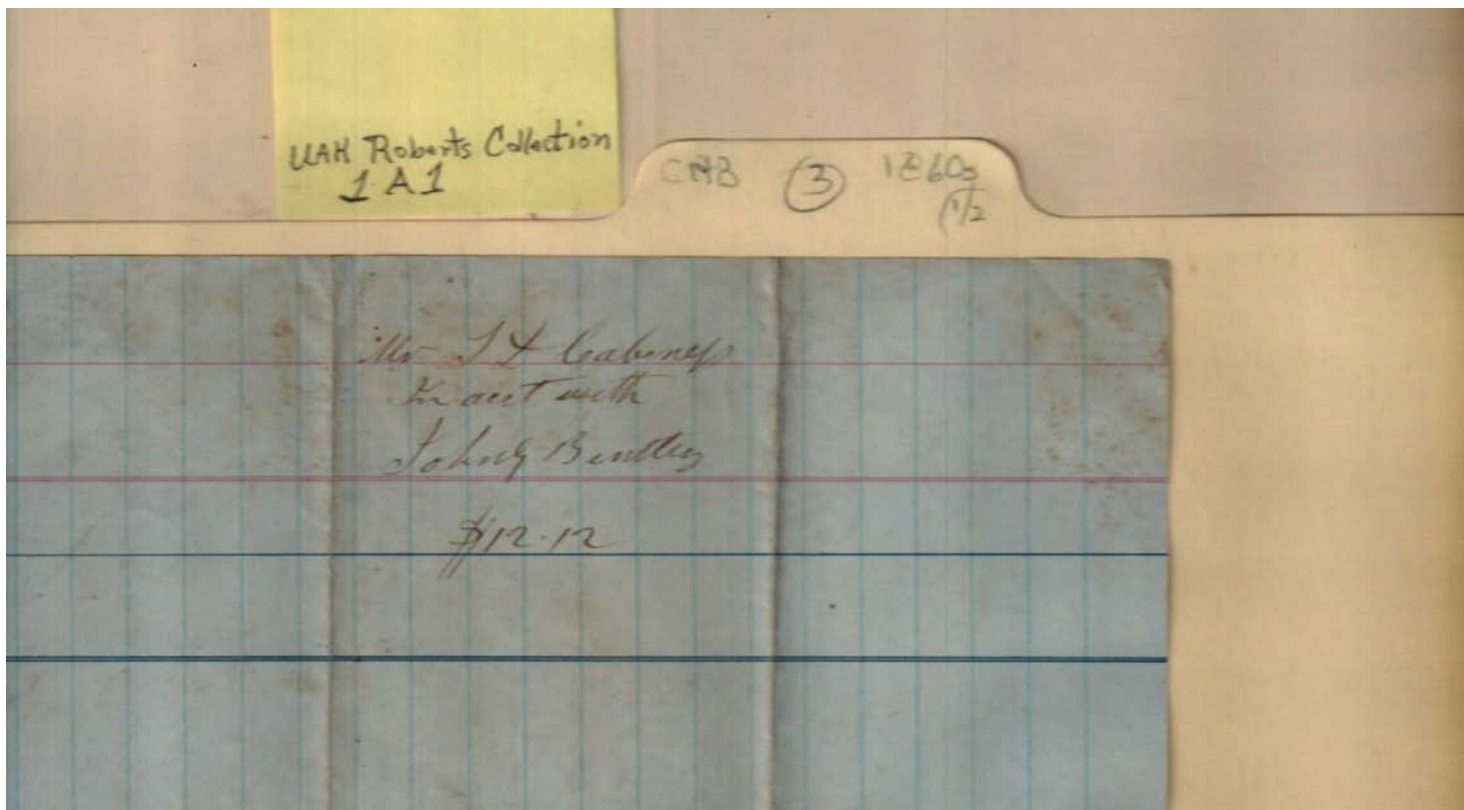 UAH Roberts Collection
1A1
CAB 3 1860s
1/2
Mr Cabiness
In acct with
John Bentley
$12.12